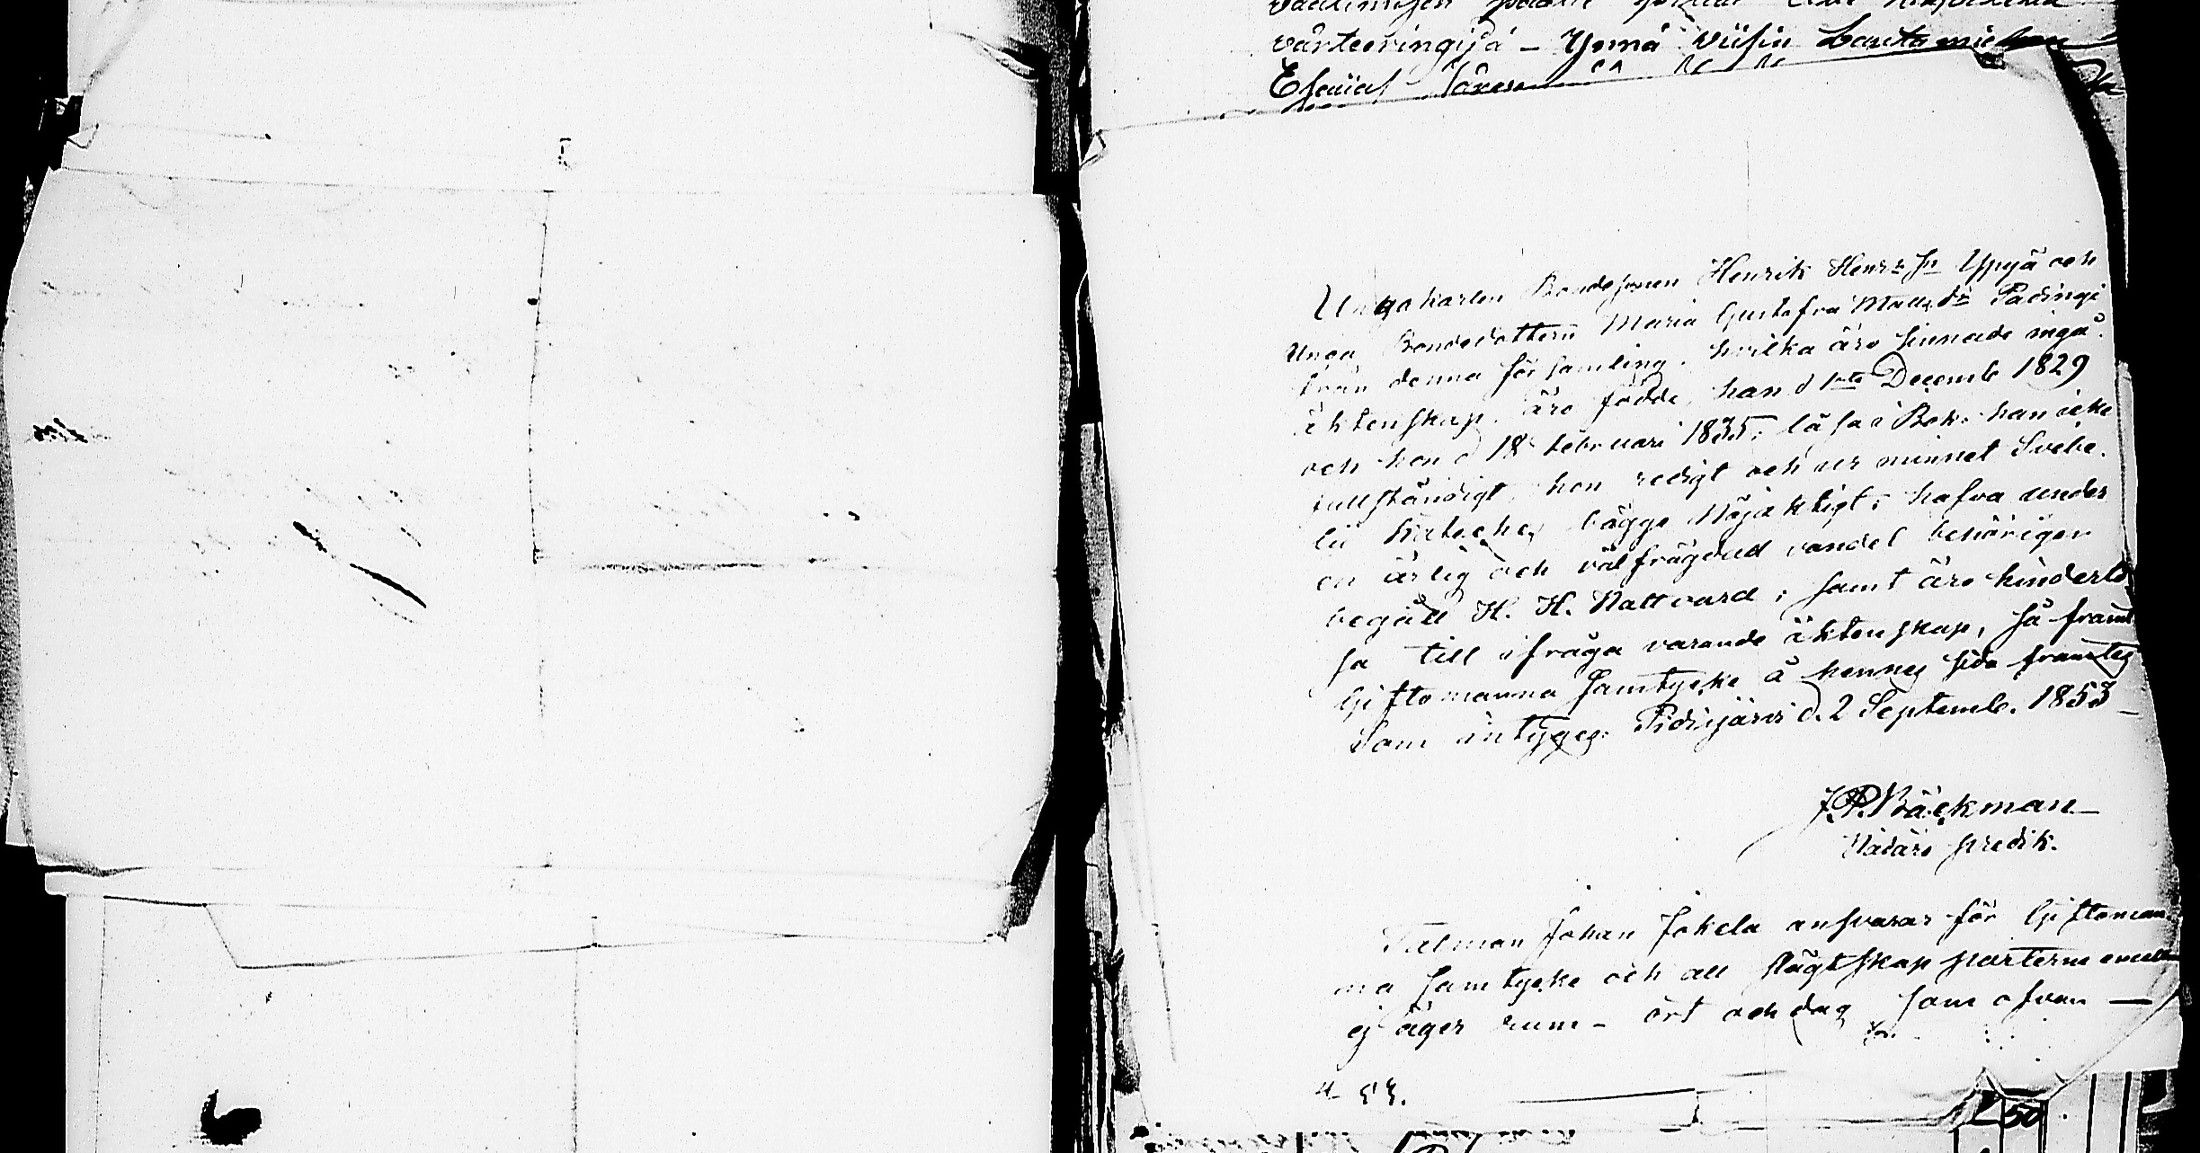 värteeringisä – Ynnä
Esaias
Unga karlen Bondesonen Henrik Henr: Sn Yppyä och
Unga Bondedottern Maria Gustafva Matts dr Padingi
från denna församling, hvilka äro sinnade ingå
äktenskap, äro födde, han d 1ste Decemb 1829
och hon d 18 Februari 1835; läsa i Bok: han icke
fullständigt, hon redigt och ur minnet Svebe.
lii Kateches bägge Nöjaktigt; hafva under
en ärlig och välfrägdad vandel behörigen
begått H. H. Nattvard; samt äro hinderlö
sa till ifråga varande äktenskap, så framt
Giftomanna samtycke å hennes sida framtes
Som intygas. Pidisjärvi d. 2 Septemb. 1853 –
J.P. Bäckman
Nådårs predik.
Talman Johan Jokela ansvarar för Giftoman
na samtycke och att slägtskap parterne emellan
ej äger rum – ort och dag som ofvan —
50